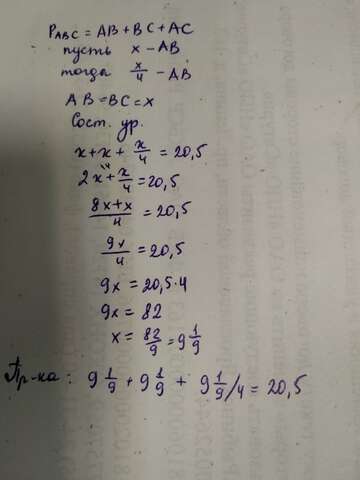 P ABC = AB + BC + AC
пусть x - AB
тогда x/4 - AB
AB = BC = x
Сост. ур.
x + x + x/4 = 20,5
2x + x/4 = 20,5
8x+x/4 = 20,5
9x/4 = 20,5
9x = 20,5·4
9x = 82
x = 82/9 = 9 1/9
Пр-ка: 9 1/9 + 9 1/9 + 9 1/9 /4 = 20,5